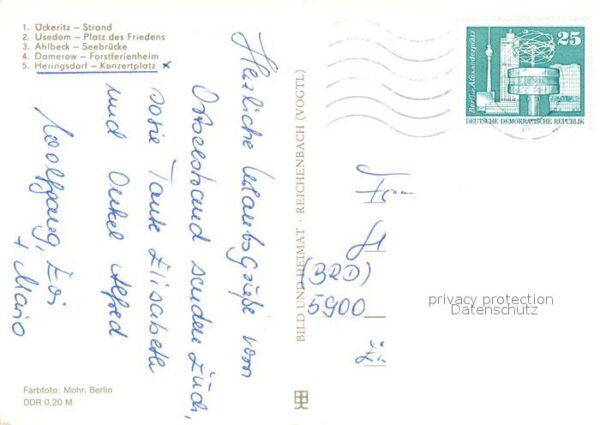 1. Ückeritz – Strand
2. Usedom – Platz des Friedens
3. Ahlbeck – Seebrücke
4. Damerow – Forstferienheim
5. Heringsdorf – Konzertplatz x
Herzliche Urlaubsgrüße vom
Ostseestrand senden Euch,
sowie Tante Elisabeth
und Onkel Alfred
Wolfgang, Evi
+ Mario
Farbfoto: Mohr, Berlin
DDR 0,20 M
BILD UND HEIMAT · REICHENBACH (VOGTL)
Berlin, Alexanderplatz
25
DEUTSCHE DEMOKRATISCHE REPUBLIK
(BRD)
5900
privacy protection
Datenschutz